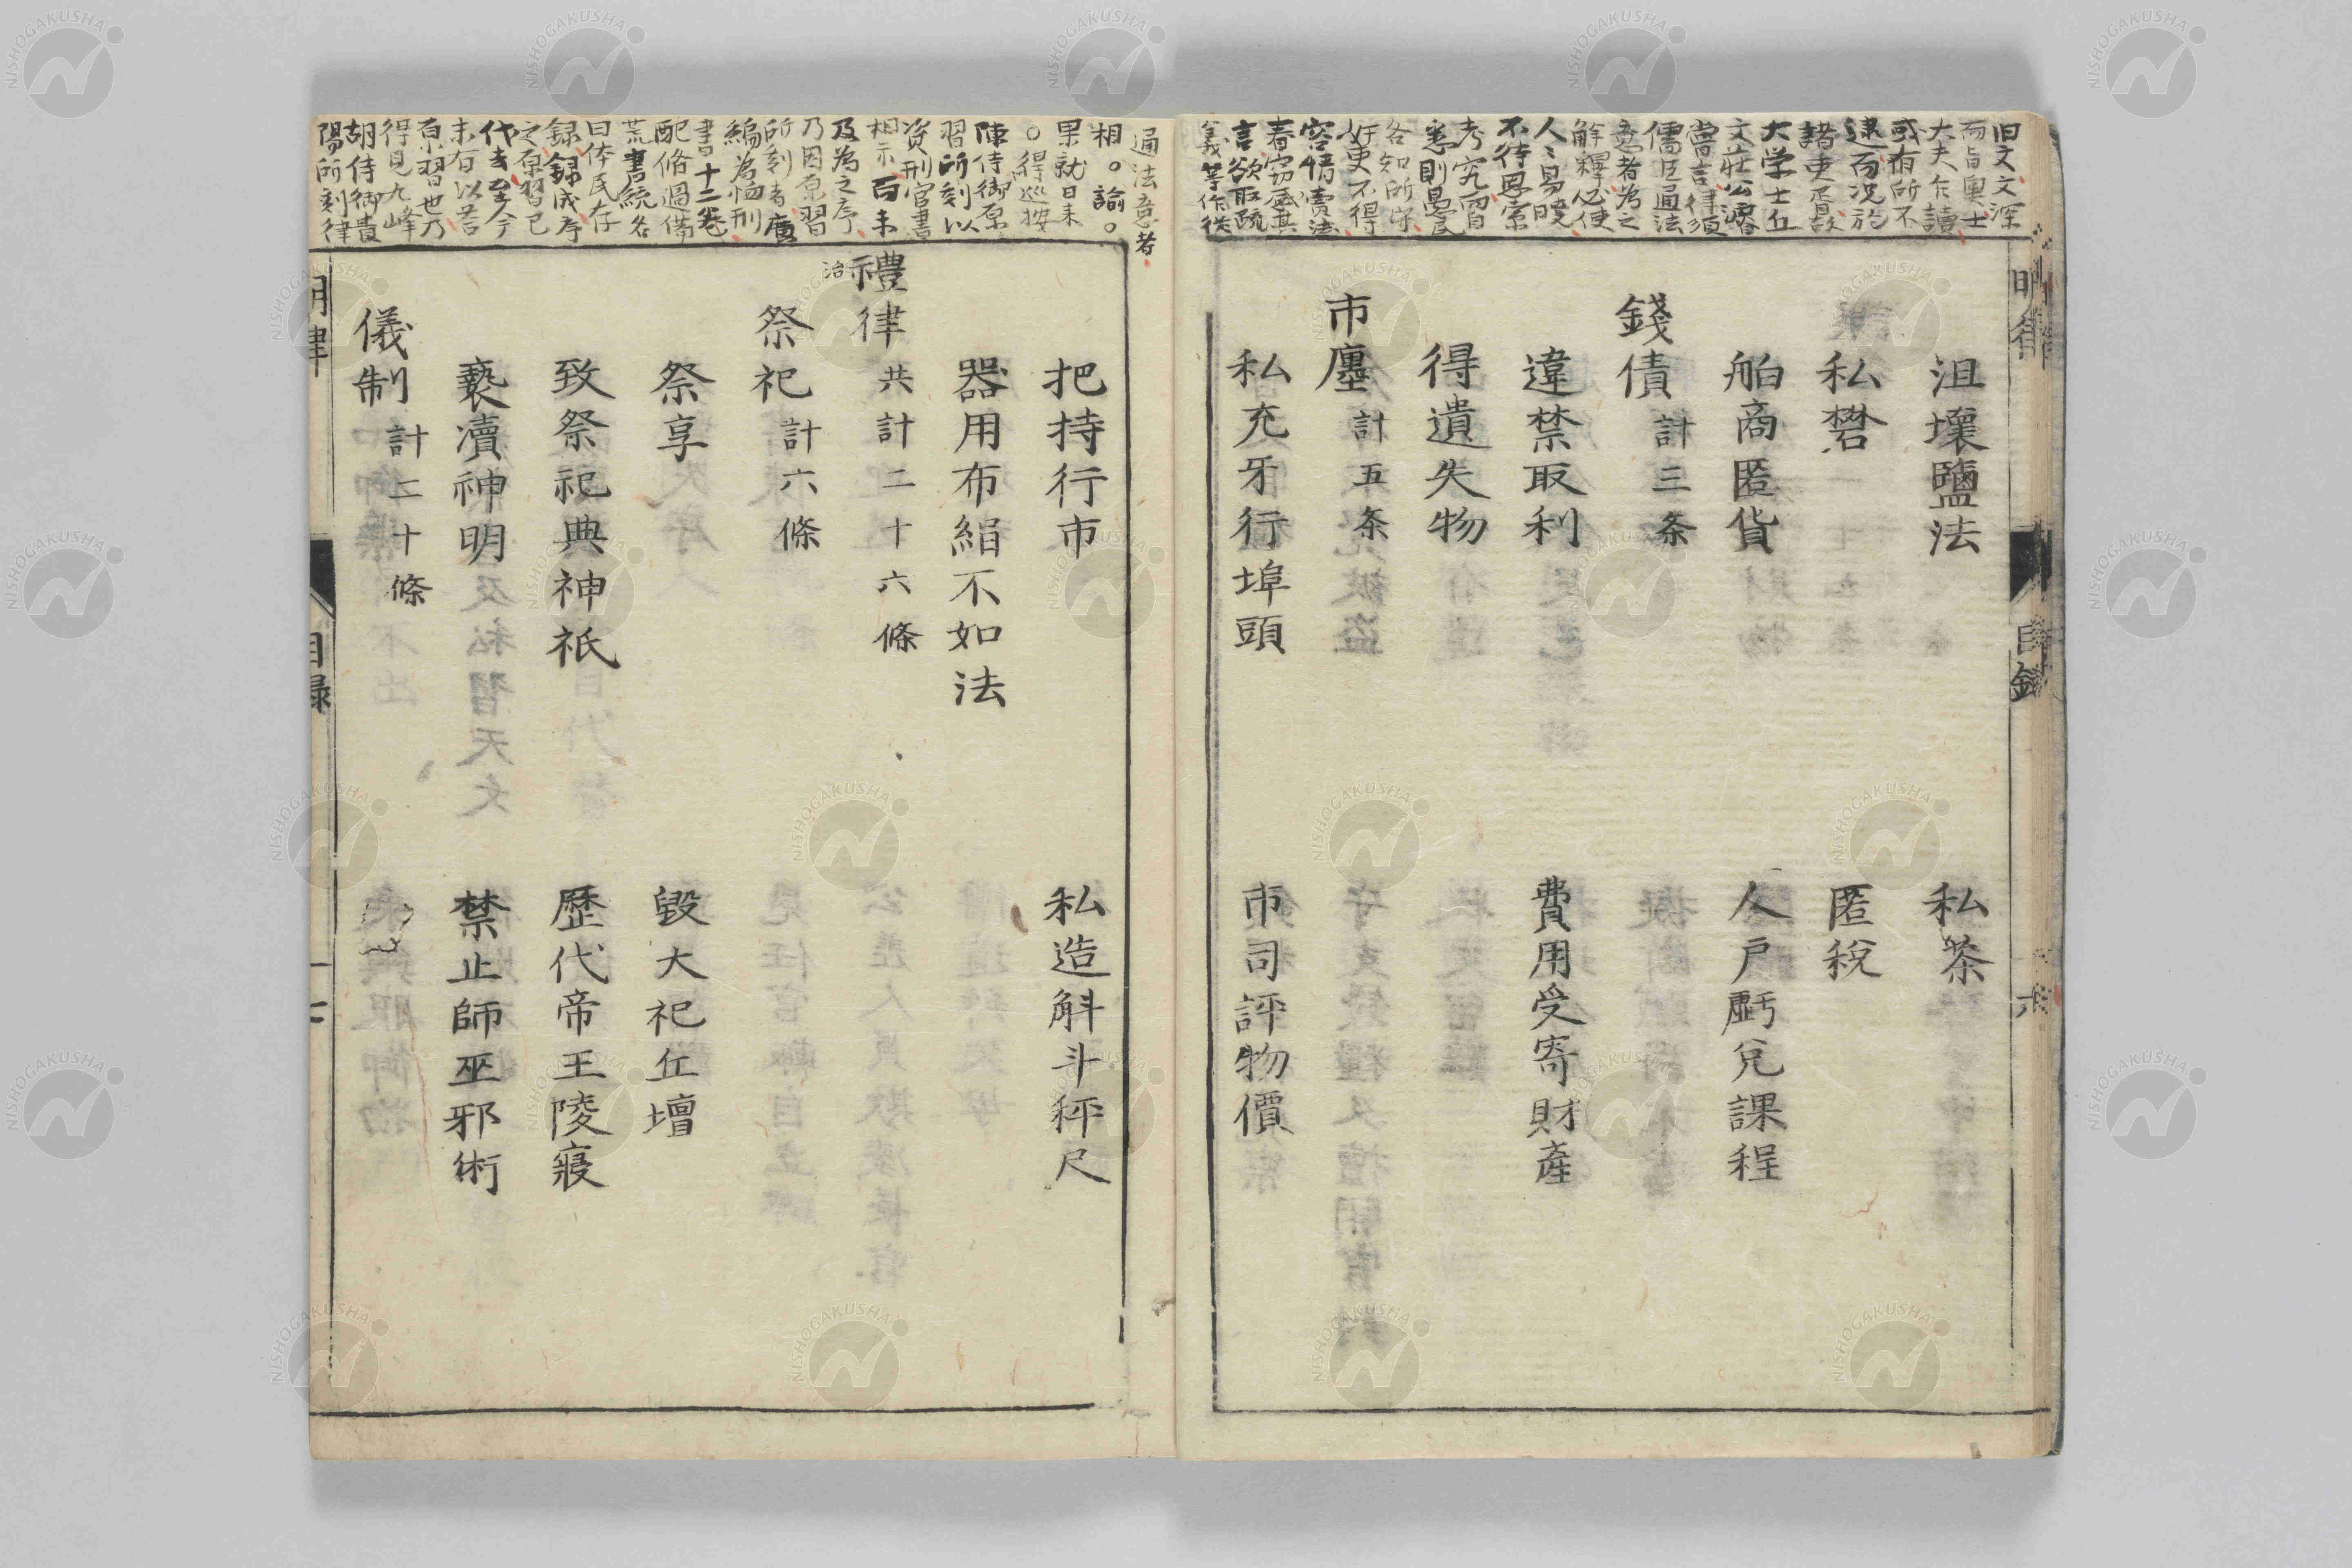 旧文文深
而旨奥士
大夫乍讀
或有所不
逮而况於
諸吏民哉
大学士丘
文莊公濬
嘗言律須
儒臣通法
意者為之
解釋必使
人〻易曉
不待思索
考究習
悉則愚民
各知所守
奸吏不得
容情賣法
春窃感其
言欲取疏
義等作從
明律
目録
六
沮壞鹽法
私茶
私礬
匿稅
舶商匿貨
人戶虧兌課程
錢債 計三条
違禁取利
費用受寄財產
得遺失物
市廛 計五条
私充牙行埠頭
市司評物價
通法意者
相。諭。
果就日未
。得巡按
陳侍御原
習所刻以
資刑官書
相示百未
及為之序
乃因原習
所刻者廣
編為恤刑
書十二卷
配脩過備
荒書統名
曰体民存
録録成序
之原習已
代去至今
未有以苔
原習也乃
得見九峰
胡侍御貴
陽所刻律
把持行市
私造斛斗秤尺
器用布絹不如法
禮律 共計二十六條
治
祭祀 計六條
祭享
毀大祀丘壇
致祭祀典神祇
歷代帝王陵寢
褻瀆神明
禁止師巫邪術
儀制 計二十條
明律
目録
七
NISHOGAKUSHA